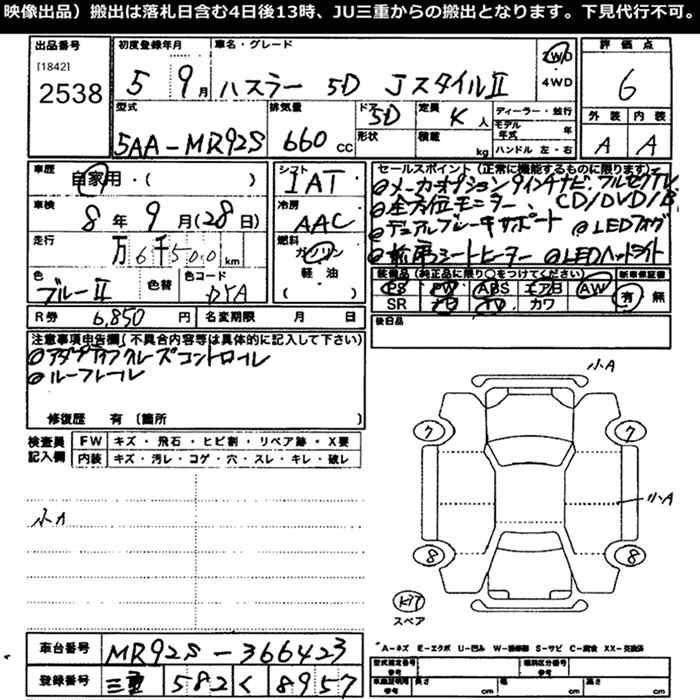 映像出品）搬出は落札日含む4日後13時、JU三重からの搬出となります。下見代行不可。
出品番号
[1842]
2538
初度登録年月
5 9月
車名・グレード
ハスラー 5D JスタイルⅡ
2WD
4WD
型式
5AA-MR92S
排気量
660 cc
ドア
5D
形状
定員
4人
積載
kg
ディーラー・並行
モデル年式 年
ハンドル 左・右
評価点
6
外装 内装
A A
車歴
自家用・( )
車検
8年 9月(28日)
走行
万6千500km
色
ブルーⅡ
色替
色コード
シフト
IAT
冷房
AAC
燃料
ガソリン
軽油
( )
セールスポイント(正常に機能するものに限ります)
◎メーカーオプション9インチナビ フルセグTV
◎全方位モニター、CD/DVD/B
◎デュアルブレーキサポート ◎LEDフォグ
◎前席シートヒーター ◎LEDヘッドライト
装備品(純正品に限り○をつけてください)
PS PW ABS エアB AW
SR ナビ TV カワ
新車保証書
有・無
後日品
R券 6,850円
名変期限 月 日
注意事項申告欄(不具合内容等は具体的に記入して下さい)
◎アダプティブクルーズコントロール
◎ルーフレール
修復歴 有(箇所 )
検査員記入欄
FW キズ・飛石・ヒビ割・リペア跡・X要
内装 キズ・汚レ・コゲ・穴・スレ・キレ・破レ
小A
小A
7 7
小A
8 8
スペア
車台番号
MR92S-366423
登録番号
三重 582 く 8957
A-キズ E-エクボ U-凹み W-補修跡 S-サビ C-腐食 XX-交換済
型式指定番号
参考
類別区分番号
参考
車庫証明用
参考
長さ cm
幅 cm
高さ cm